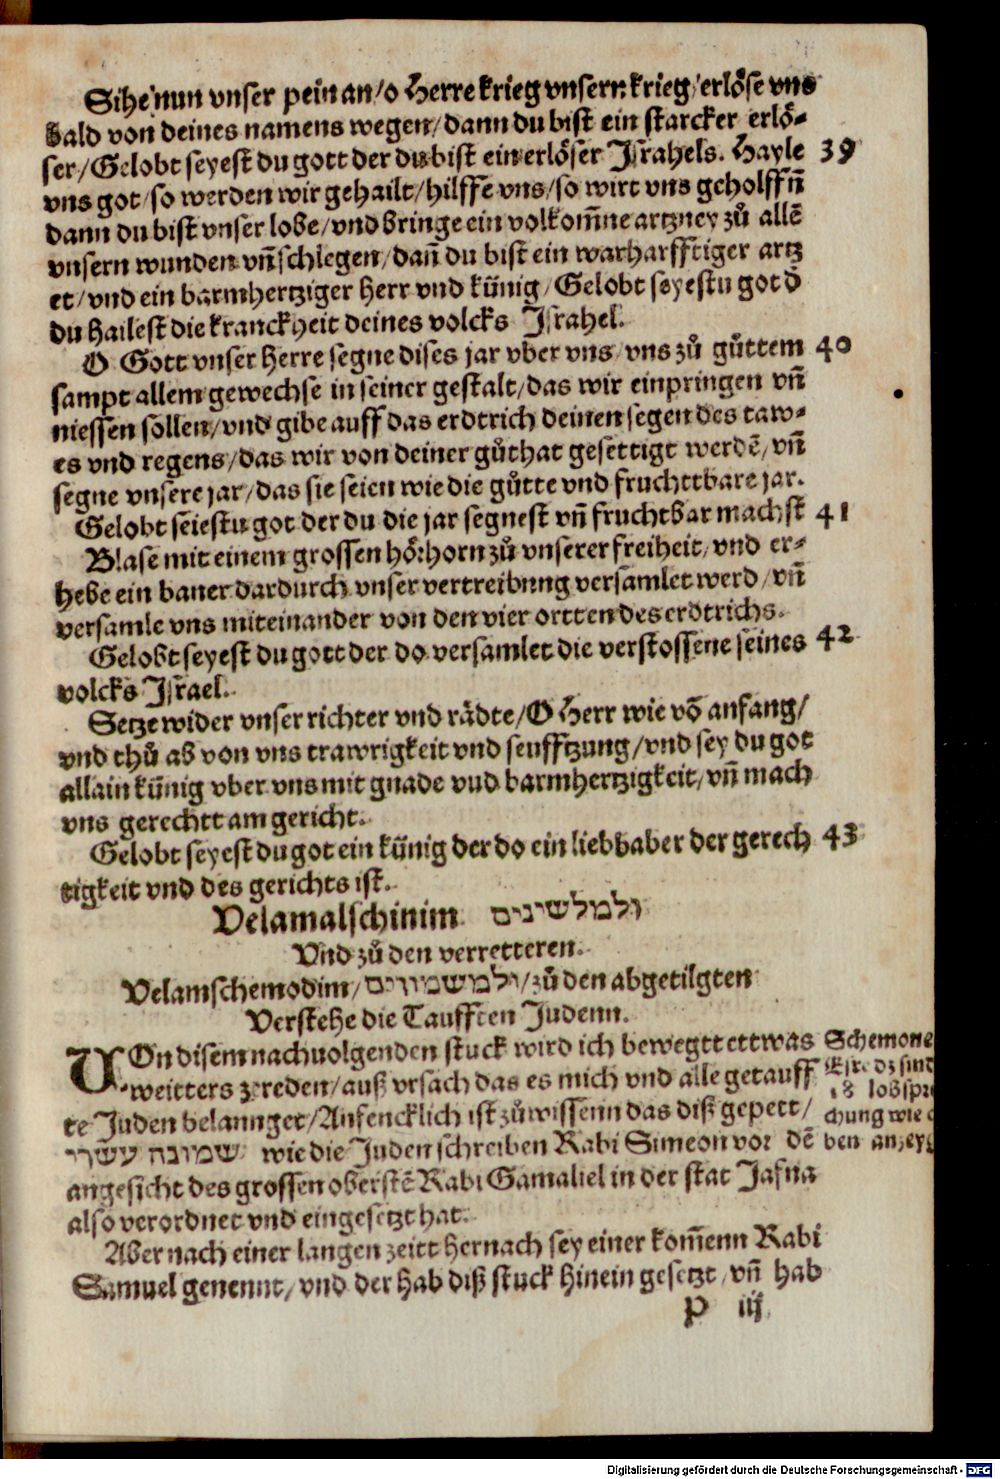 Sihe nun vnser pein an/o Herre krieg vnsern krieg/erlöse vns
bald von deines namens wegen/dann du bist ein starcker erlö-
ser/Gelobt seyest du gott der du bist ein erlöser Jsrahels. Hayle 39
vns got/so werden wir gehailt/hilffe vns/so wirt vns geholffn̄
dann du bist vnser lobe/vnd bringe ein volkom̄ne artzney zů allē
vnsern wunden vn̄ schlegen/dan̄ du bist ein warharfftiger artz
et/vnd ein barmhertziger herr vnd künig/Gelobt seyestu got d̄
du hailest die kranckheit deines volcks Jsrahel.
O Gott vnser herre segne dises jar vber vns/vns zů gůttem 40
sampt allem gewechse in seiner gestalt/das wir einpringen vn̄
niessen sollen/vnd gibe auff das erdtrich deinen segen des taw-
es vnd regens/das wir von deiner gůthat gesettigt werdē/vn̄
segne vnsere jar/das sie seien wie die gůtte vnd fruchttbare jar.
Gelobt seiestu got der du die jar segnest vn̄ fruchtbar machst 41
Blase mit einem grossen hörhorn zů vnserer freiheit/vnd er-
hebe ein baner dardurch vnser vertreibung versamlet werd/vn̄
versamle vns miteinander von den vier ortten des erdtrichs.
Gelobt seyest du gott der do versamlet die verstossene seines 42
volcks Jsrael.
Setze wider vnser richter vnd rädte/O Herr wie vō anfang/
vnd thů ab von vns trawrigkeit vnd seufftzung/vnd sey du got
allain künig vber vns mit gnade vnd barmhertzigkeit/vn̄ mach
vns gerechtt am gericht.
Gelobt seyest du got ein künig der do ein liebhaber der gerech 43
tigkeit vnd des gerichts ist.
Velamalschinim ולמלשינים
Vnd zů den verretteren.
Velamschemodim/ולמשמודים/zů den abgetilgten
Verstehe die Taufften Judenn.
VOn disem nachuolgenden stuck wird ich bewegtt ettwas
weitters zreden/auß vrsach das es mich vnd alle getauff
te Juden belannget/Anfencklich ist zůwissenn das diß gepett/
שמונה עשרי wie die Juden schreiben Rabi Simeon vor dē
angesicht des grossen oberstē Rabi Gamaliel in der stat Jafna
also verordnet vnd eingesetzt hat.
Schemone
Esre dz sind
18 lobspre
chung wie
ben anzey
Aber nach einer langen zeitt hernach sey einer kom̄enn Rabi
Samuel genennt/vnd der hab diß stuck hinein gesetzt/vn̄ hab
P iij
Digitalisierung gefördert durch die Deutsche Forschungsgemeinschaft - DFG